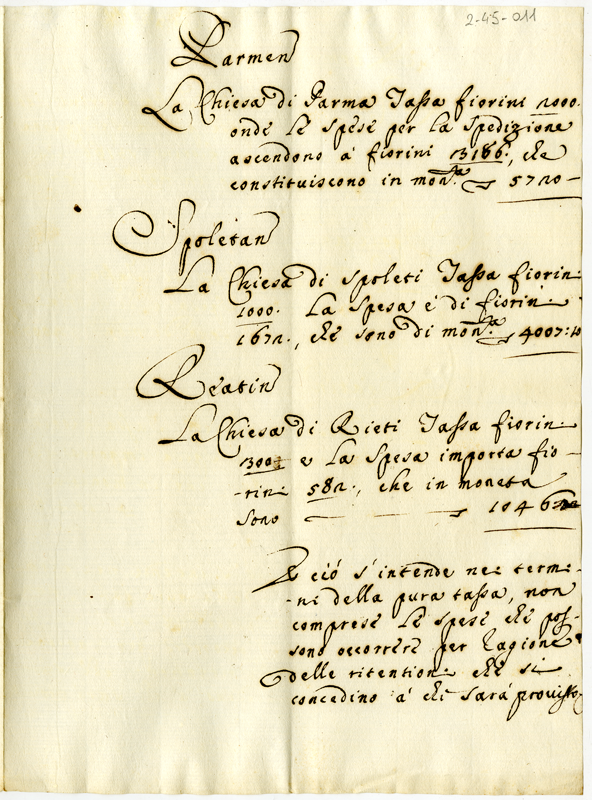 2-45-011
Parmen
La Chiesa di Parma Tassa fiorini 2000.
onde le spese per la spedizione
ascendono à fiorini 3186., che
constituiscono in mon.ta 5720
Spoletan
La Chiesa di Spoleti Tassa fiorin:
1000. La spesa è di fiorin:
1672., che sono di mon.ta 4007:10
Reatin
La Chiesa di Rieti Tassa fiorin:
300 e la spesa importa fio-
-rini 582., che in moneta
sono
E ciò s'intende ne: termi-
-ni della pura tassa, non
comprese le spese che pos-
sono occorrere per ragione
delle ritention: che si
concedino à chi sarà provisto